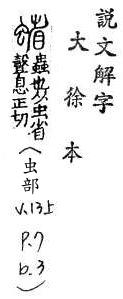 說文解字
大徐本
䗌 蟲也从虫省
聲息正切
(虫部
v.13上
p.7
b.3)